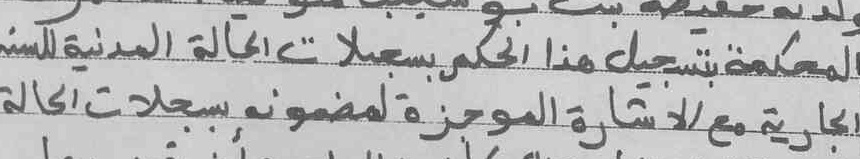 المحكمة بتسجيل هذا الحكم بسجلات الحالة المدنية للسنة
الجارية مع الاشارة الموجزة لمضمونه بسجلات الحالة